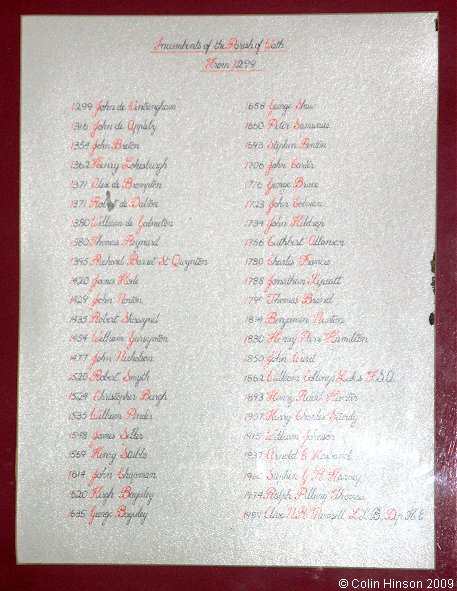 Incumbents of the Parish of Wath
From 1299
1299 John de
1316 John de Appleby
1354 John Breton
1362 Henry
1371 Alex de Brompton
Robert de Dalton
1380 William de
1380 Thomas Aynard
1395 Richard Barret St Quynton
1420 James
1429 John Norton
1435 Robert
1454 William
1477 John Nicholson
1520 Robert Smyth
1524 Christopher Burgh
1535 William Pinder
1548 James Siller
1569 Henry Stubbs
1614 John Chapman
1620 Hugh Baguley
1635 George Baguley
1658 George Shaw
1660 Peter Samwaies
1693 Stephen Penton
1706 John
1716 George Bruce
1723 John Coleman
1734 John Hildrop
1756 Cuthbert Allanson
1780 Charles Francis
1788 Jonathan Lyzatt
Thomas Brand
1814 Benjamin Newton
1830 Henry Parr Hamilton
1850 John Ward
1862 William Collings Lukis F.S.A.
1893 Henry Hunter
1907 Harry Charles Sturdy
1915 William Johnson
1937 Arnold E.
Stephen G. H. Harvey
1974 Ralph Thomas
Clive L.L.B., Dip H.E
© Colin Hinson 2009